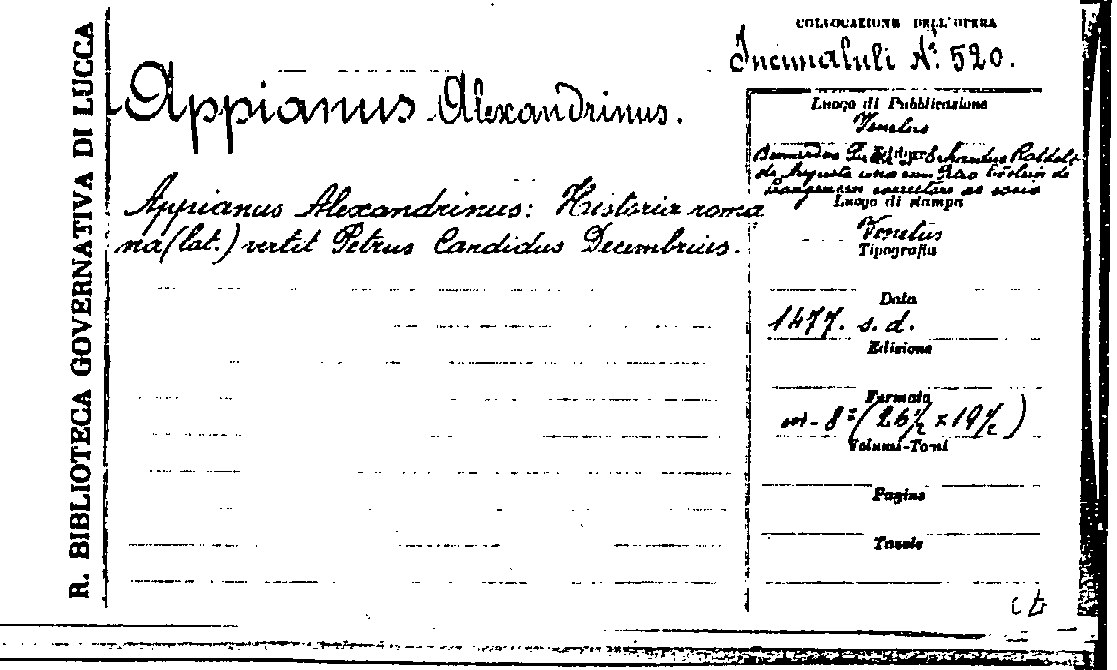 R. BIBLIOTECA GOVERNATIVA DI LUCCA
COLLOCAZIONE DELL'OPERA
Incunabuli N.° 520.
Appianus Alexandrinus.
Appianus Alexandrinus: Historia roma
na (lat.) vertit Petrus Candidus Decembrius.
Luogo di Pubblicazione
Venetus
Bernardus
de Augusta una cum
correctore ac socio
Luogo di stampa
Venetus
Tipografia
Data
1477. s. d.
Edizione
Formato
in-8° (26½ x 19½)
Volumi-Tomi
Pagine
Tavole